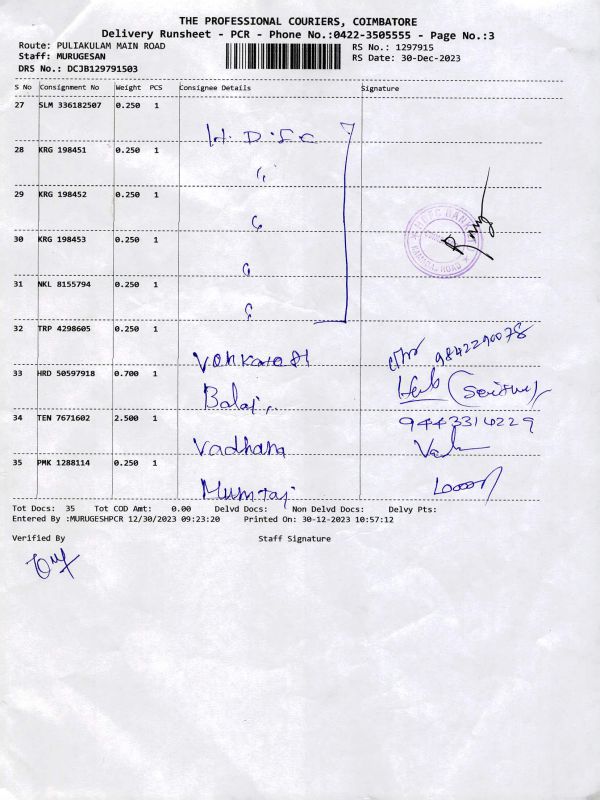 THE PROFESSIONAL COURIERS, COIMBATORE
Delivery Runsheet - PCR - Phone No.:0422-3505555 - Page No.:3
Route: PULIAKULAM MAIN ROAD RS No.: 1297915
Staff: MURUGESAN RS Date: 30-Dec-2023
DRS No.: DCJB129791503
S No Consignment No Weight PCS Consignee Details Signature
27 SLM 336182507 0.250 1
H.D.F.C
28 KRG 198451 0.250 1
29 KRG 198452 0.250 1
30 KRG 198453 0.250 1
HDFC BANK
31 NKL 8155794 0.250 1
32 TRP 4298605 0.250 1
9842290078
33 HRD 50597918 0.700 1
Balaji
34 TEN 7671602 2.500 1 9443314229
Vadhana
35 PMK 1288114 0.250 1
Mumtaj
Tot Docs: 35 Tot COD Amt: 0.00 Delvd Docs: Non Delvd Docs: Delvy Pts:
Entered By :MURUGESHPCR 12/30/2023 09:23:20 Printed On: 30-12-2023 10:57:12
Verified By Staff Signature